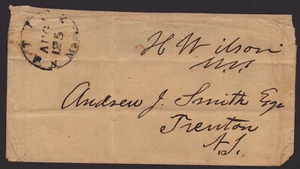 AUG
25
H Wilson
Andrew J. Smith Esq
Trenton
N.J.